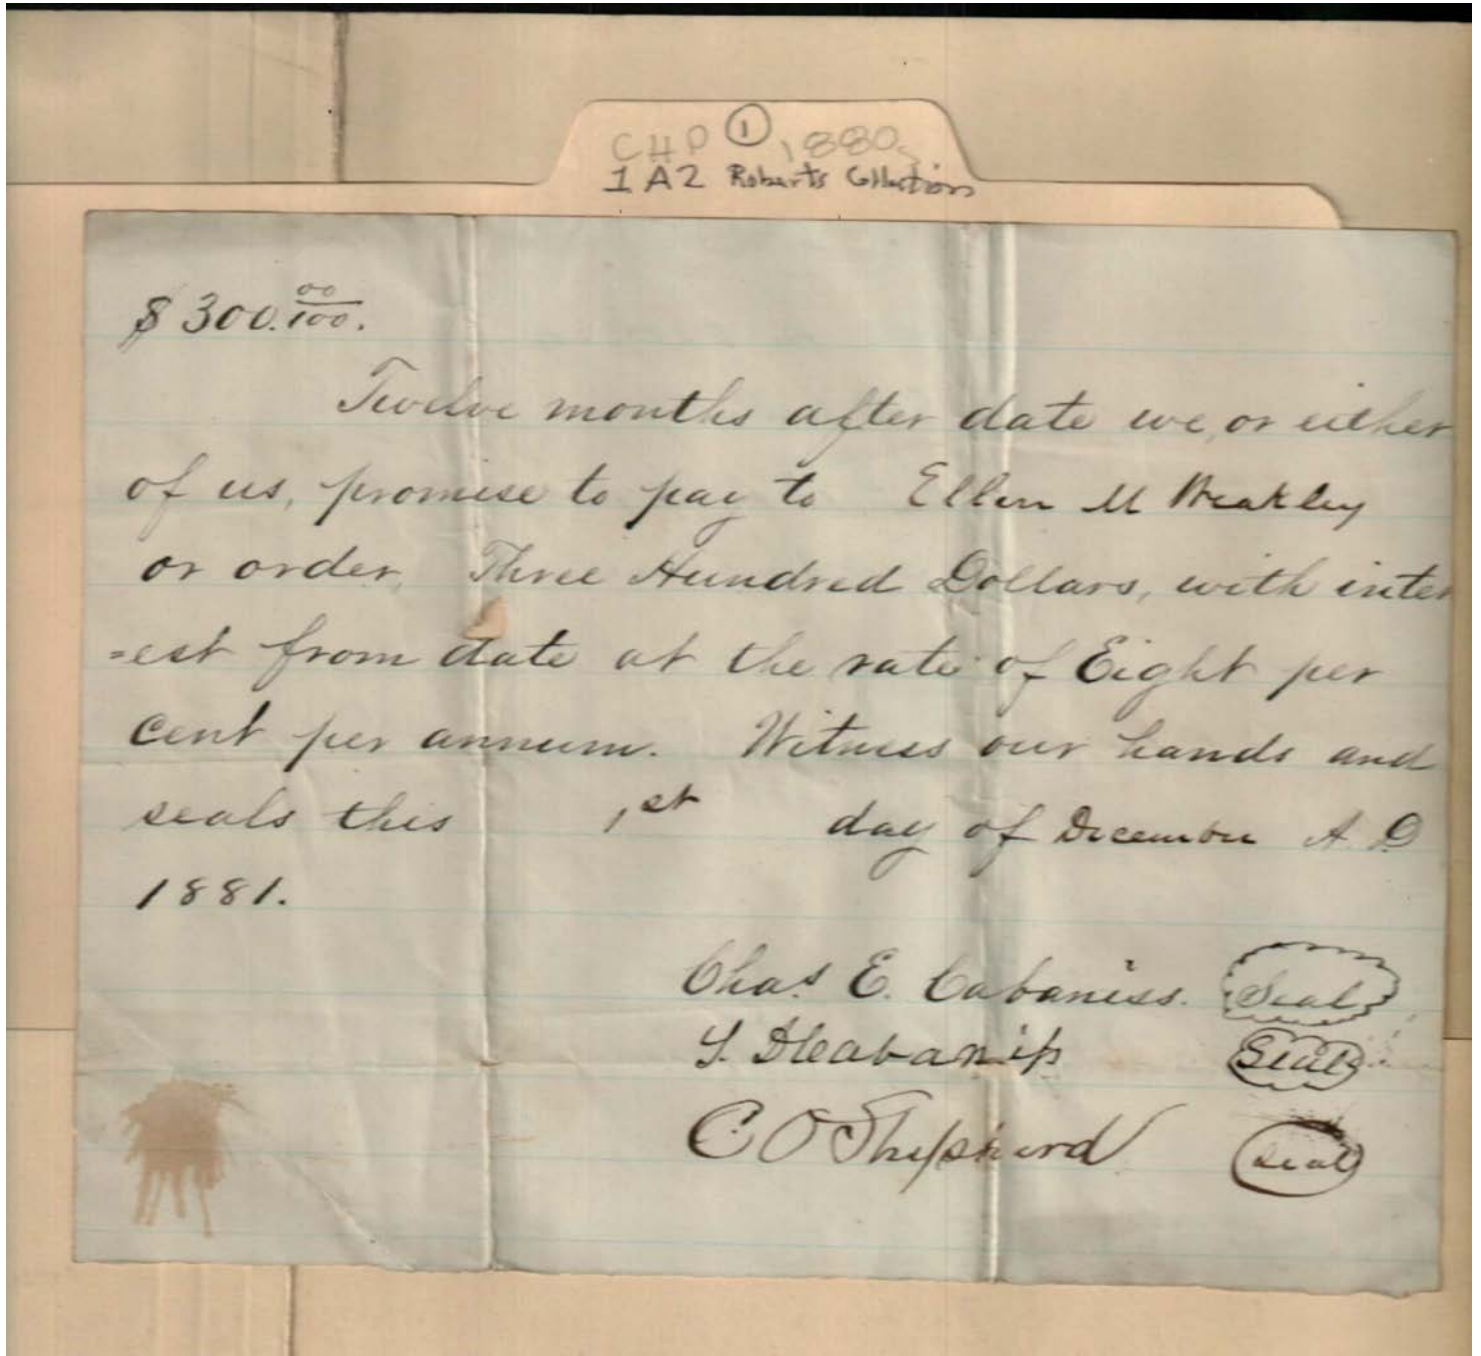 CHP ① 1880s
1A2 Roberts Collection
$300.00/100.
Twelve months after date we, or either
of us, promise to pay to Ellen M Weakley
or order, Three Hundred Dollars, with inter
=est from date at the rate of Eight per
cent per annum. Witness our hands and
seals this 1st day of December A.D
1881.
Chas. E. Cabaniss. Seal
S. D. Cabaniss Seal
C O Shepherd seal